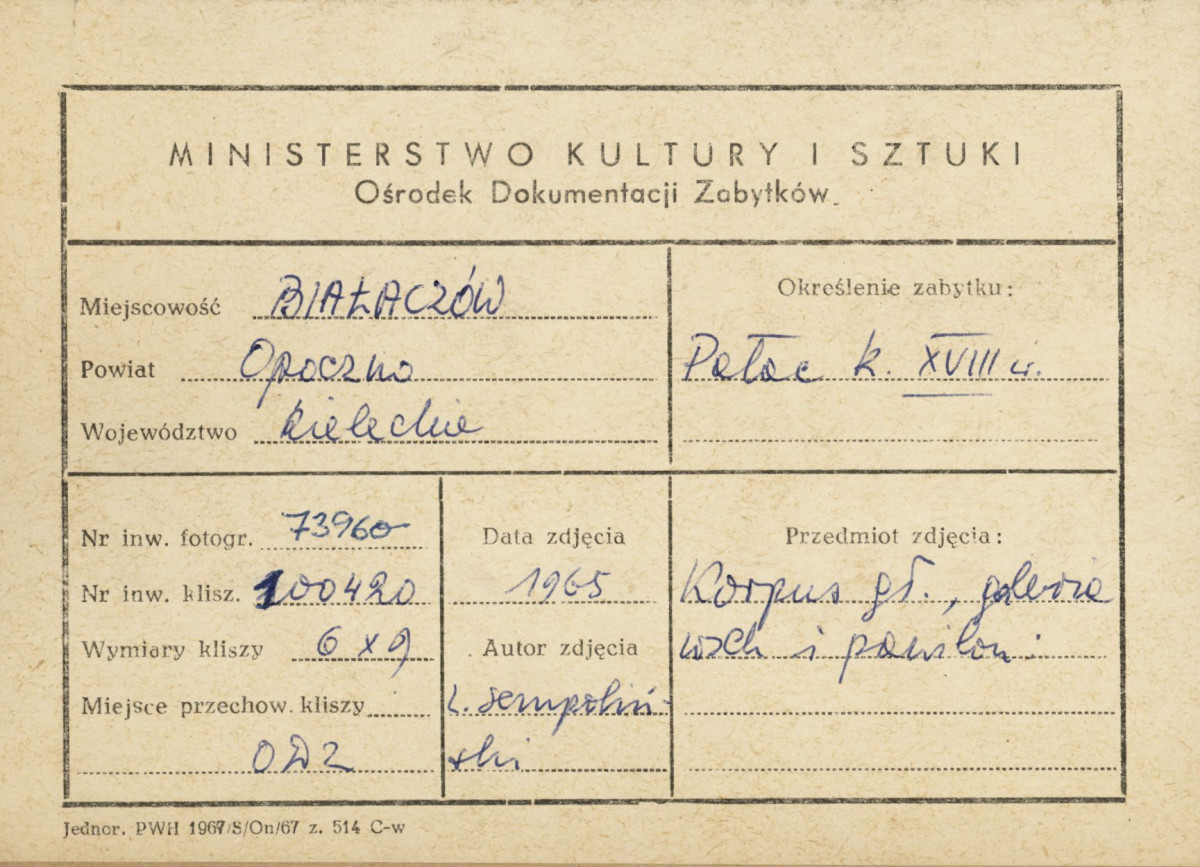 MINISTERSTWO KULTURY I SZTUKI
Ośrodek Dokumentacji Zabytków
Miejscowość BIAŁACZÓW
Powiat Opoczno
Województwo kieleckie
Określenie zabytku:
Pałac k. XVIII w.
Nr inw. fotogr. 73960
Nr inw. klisz. 100420
Wymiary kliszy 6 x 9
Miejsce przechow. kliszy
ODZ
Data zdjęcia
1965
Autor zdjęcia
L. Sempoliń-
ski
Przedmiot zdjęcia:
Korpus gł., galeria
wsch i pawilon.
Jednor. PWH 1967/S/On/67 z. 514 C-w